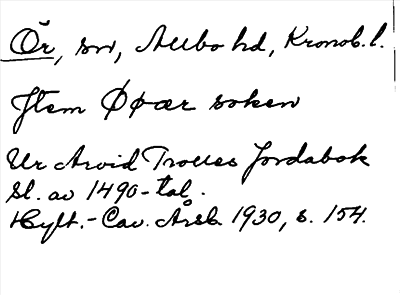 Ör, sn, Allbo hd, Kronob. l.
Jtem Øpær soken
Ur Arvid Trolles Jordabok
sl. av 1490-tal.
Hylt.-Cav. Årsb. 1930, s. 154.